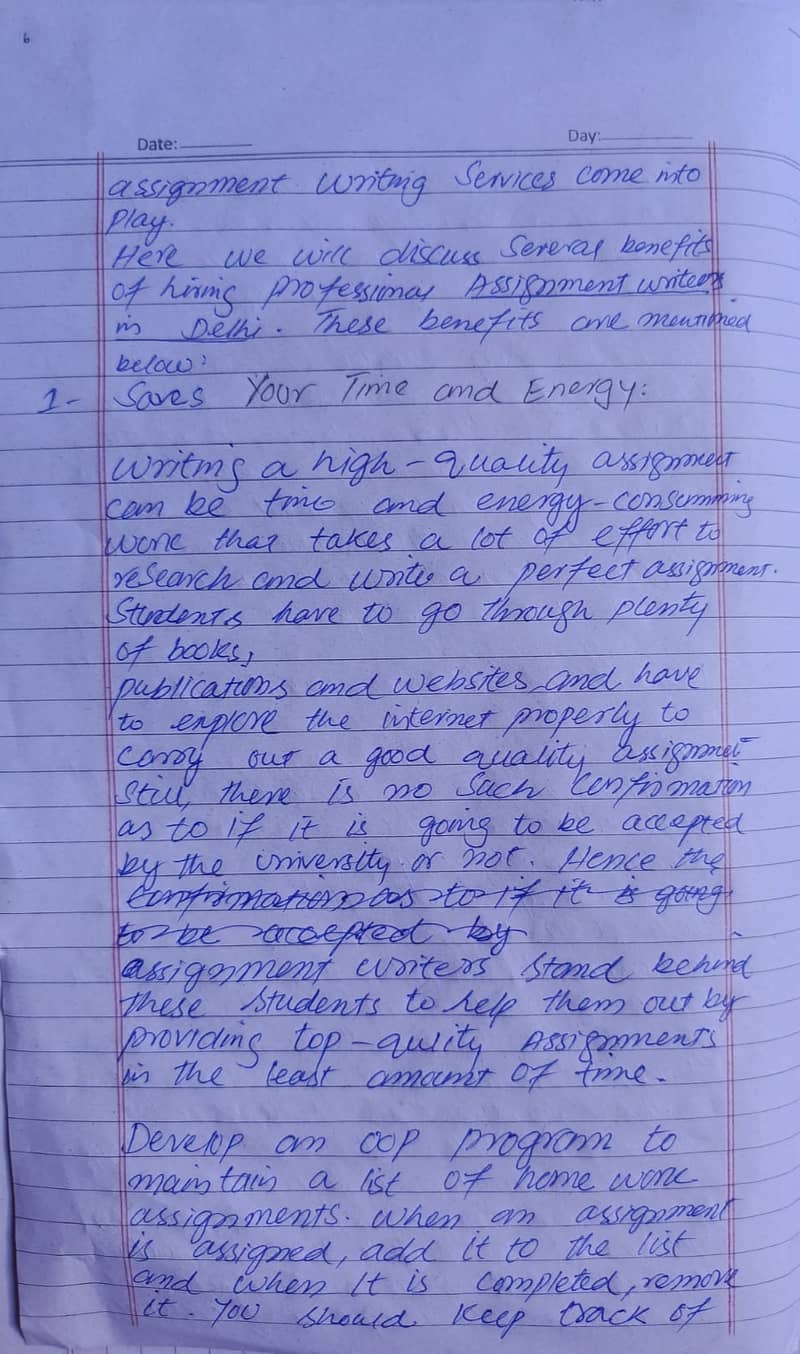 6
Date: Day:
assignment writing Services come into
play.
Here we will discuss Several benefits
of hiring professional Assignment writers
in Delhi. These benefits are mentioned
below:
1- Saves Your Time and Energy:
writing a high-quality assignment
can be time and energy-consumming
work that takes a lot of effort to
research and write a perfect assignment.
Students have to go through plenty
of books,
publications and websites and have
to explore the internet properly to
carry out a good quality assignment
Still, there is no Such Confirmation
as to if it is going to be accepted
by the university or not. Hence the
Confirmation as to if it is going
to be accepted by
assignment writers stand behind
these students to help them out by
providing top-qulity Assignments
in the least amount of time.
Develop an OOP program to
maintain a list of home work
assignments. when an assignment
is assigned, add it to the list
and when it is completed, remove
it. You should keep track of